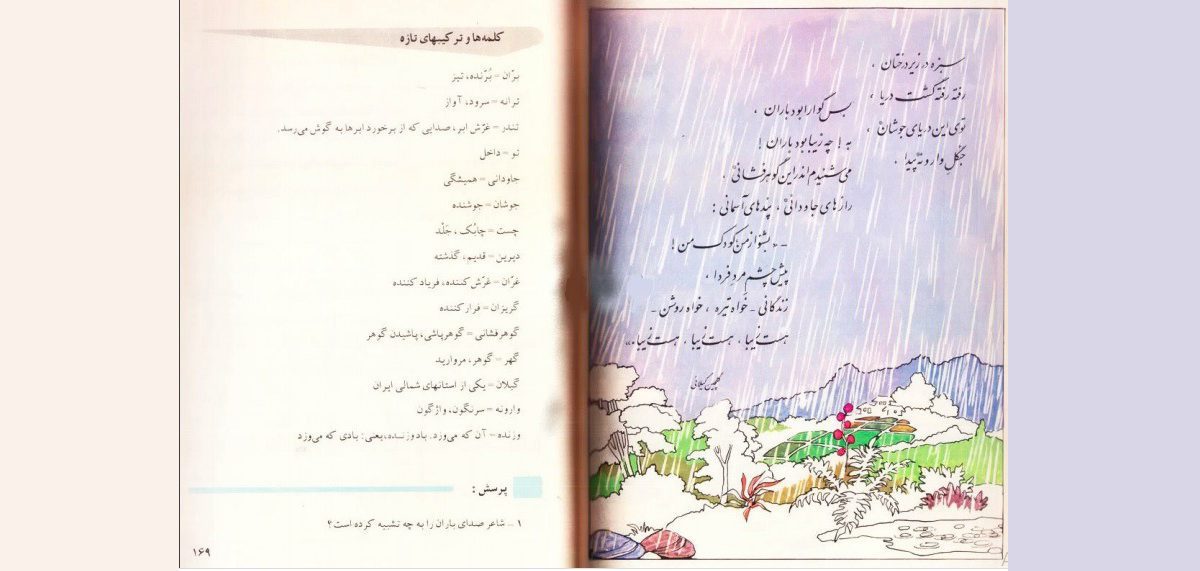 سبزه در زیر درختان ،
رفته رفته گشت دریا ،
توی این دریای جوشان ،
جنگل وارونه پیدا .
بس گوارا بود باران ،
به ! چه زیبا بود باران !
می‌شنیدم اندر این گوهر فشانی ،
رازهای جاودانی ، پندهای آسمانی :
- « بشنو از من کودک من !
پیش چشم مرد فردا ،
زندگانی - خواه تیره ، خواه روشن -
هست زیبا ، هست زیبا ، هست زیبا . »
گلچین گیلانی
کلمه‌ها و ترکیبهای تازه
برّان = بُرّنده، تیز
ترانه = سرود، آواز
تندر = غرّش ابر، صدایی که از برخورد ابرها به گوش می‌رسد.
تو = داخل
جاودانی = همیشگی
جوشان = جوشنده
چست = چابک ، جَلْد
دیرین = قدیم، گذشته
غرّان = غرّش کننده، فریاد کننده
گریزان = فرار کننده
گوهرفشانی = گوهرپاشی، پاشیدن گوهر
گهر = گوهر، مروارید
گیلان = یکی از استانهای شمالی ایران
وارونه = سرنگون، واژگون
وزنده = آن که می‌وزد. باد وزنده، یعنی: بادی که می‌وزد
پرسش :
۱ - شاعر صدای باران را به چه تشبیه کرده است؟
۱۶۹